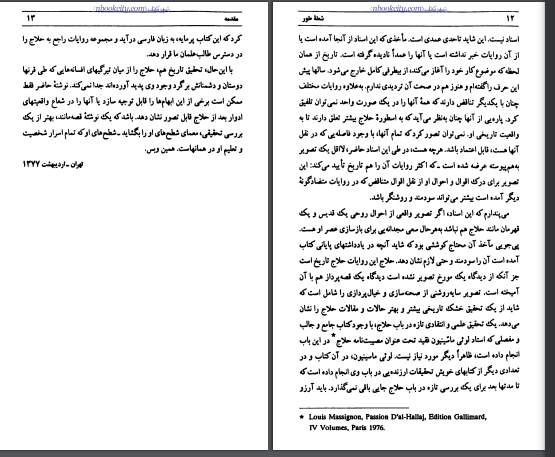 nbookcity.com
۱۲
شعلهٔ طور
اسناد نیست. این شاید تاحدی عمدی است. مأخذی که این اسناد از آنجا آمده است یا
از آن روایات خبر نداشته است یا آنها را عمداً نادیده گرفته است. تاریخ از همان
لحظه که موضوع کار خود را آغاز می‌کند، از بیطرفی کامل خارج می‌شود. سالها پیش
این حرف را گفته‌ام و هنوز هم در صحت آن تردیدی ندارم. به‌علاوه روایات مختلف
چنان با یکدیگر تناقض دارند که همهٔ آنها را در یک صورت واحد نمی‌توان تلفیق
کرد. پاره‌یی از آنها چنان به‌نظر می‌آید که به اسطورهٔ حلاج بیشتر تعلق دارند تا به
واقعیت تاریخی او. نمی‌توان تصور کرد که تمام آنها، با وجود فاصله‌یی که در نقل
آنها هست، قابل اعتماد باشد. هرچه هست، در طی این اسناد حاضر، لااقل یک تصویر
به‌هم‌پیوسته عرضه شده است ـ که اکثر روایات آن را هم تاریخ تأیید می‌کند: این
تصویر برای درک اقوال و احوال او از نقل اقوال متناقض که در روایات متضادگونهٔ
دیگر آمده است بیشتر می‌تواند سودمند و روشنگر باشد.
می‌پندارم که این اسناد، اگر تصویر واقعی از احوال روحی یک قدیس و یک
قهرمان مانند حلاج هم نباشد به‌هرحال سعی مجدانه‌یی برای بازسازی عصر او هست.
پی‌جویی مآخذ آن محتاج کوششی بود که شاید آنچه در یادداشتهای پایانی کتاب
آمده است آن را سودمند و حتی لازم نشان دهد. حلاج این روایات حلاج تاریخ است
جز آنکه از دیدگاه یک مورخ تصویر نشده است دیدگاه یک قصه‌پرداز هم با آن
آمیخته است. تصویر سایه‌روشنی از صحنه‌سازی و خیال‌پردازی را شامل است که
شاید از یک تحقیق خشک تاریخی بیشتر و بهتر حالات و مقالات حلاج را نشان
می‌دهد. یک تحقیق علمی و انتقادی تازه در باب حلاج، با وجود کتاب جامع و جالب
و مفصلی که استاد لوئی ماسینیون فقید تحت عنوان مصیبت‌نامه حلاج* در این باب
انجام داده است، ظاهراً دیگر مورد نیاز نیست. لوئی ماسینیون، در آن کتاب و در
تعدادی دیگر از کتابهای خویش تحقیقات ارزنده‌یی در باب وی انجام داده است که
تا مدتها بعد برای یک بررسی تازه در باب حلاج جایی باقی نمی‌گذارد. باید آرزو
* Louis Massignon, Passion D'al-Hallaj, Edition Gallimard,
IV Volumes, Paris 1976.
nbookcity.com
مقدمه
۱۳
کرد که این کتاب پرمایه، به زبان فارسی درآید و مجموعه روایات راجع به حلاج را
در دسترس طالب‌علمان ما قرار دهد.
با این‌حال، تحقیق تاریخ هم، حلاج را از میان تیرگیهای افسانه‌هایی که طی قرنها
دوستان و دشمنانش برگرد وجود وی پدید آورده‌اند جدا نمی‌کند. نوشتهٔ حاضر فقط
ممکن است برخی از این ابهام‌ها را قابل توجیه سازد یا آنها را در شعاع واقعیتهای
ادوار بعد از حلاج قابل تصور نشان دهد. باشد که یک نوشتهٔ قصه‌مانند، بهتر از یک
بررسی تحقیقی، معمای شطح‌های او را بگشاید ـ شطح‌های او که تمام اسرار شخصیت
و تعلیم او در همانهاست. همین و بس.
تهران ـ اردیبهشت ۱۳۷۷